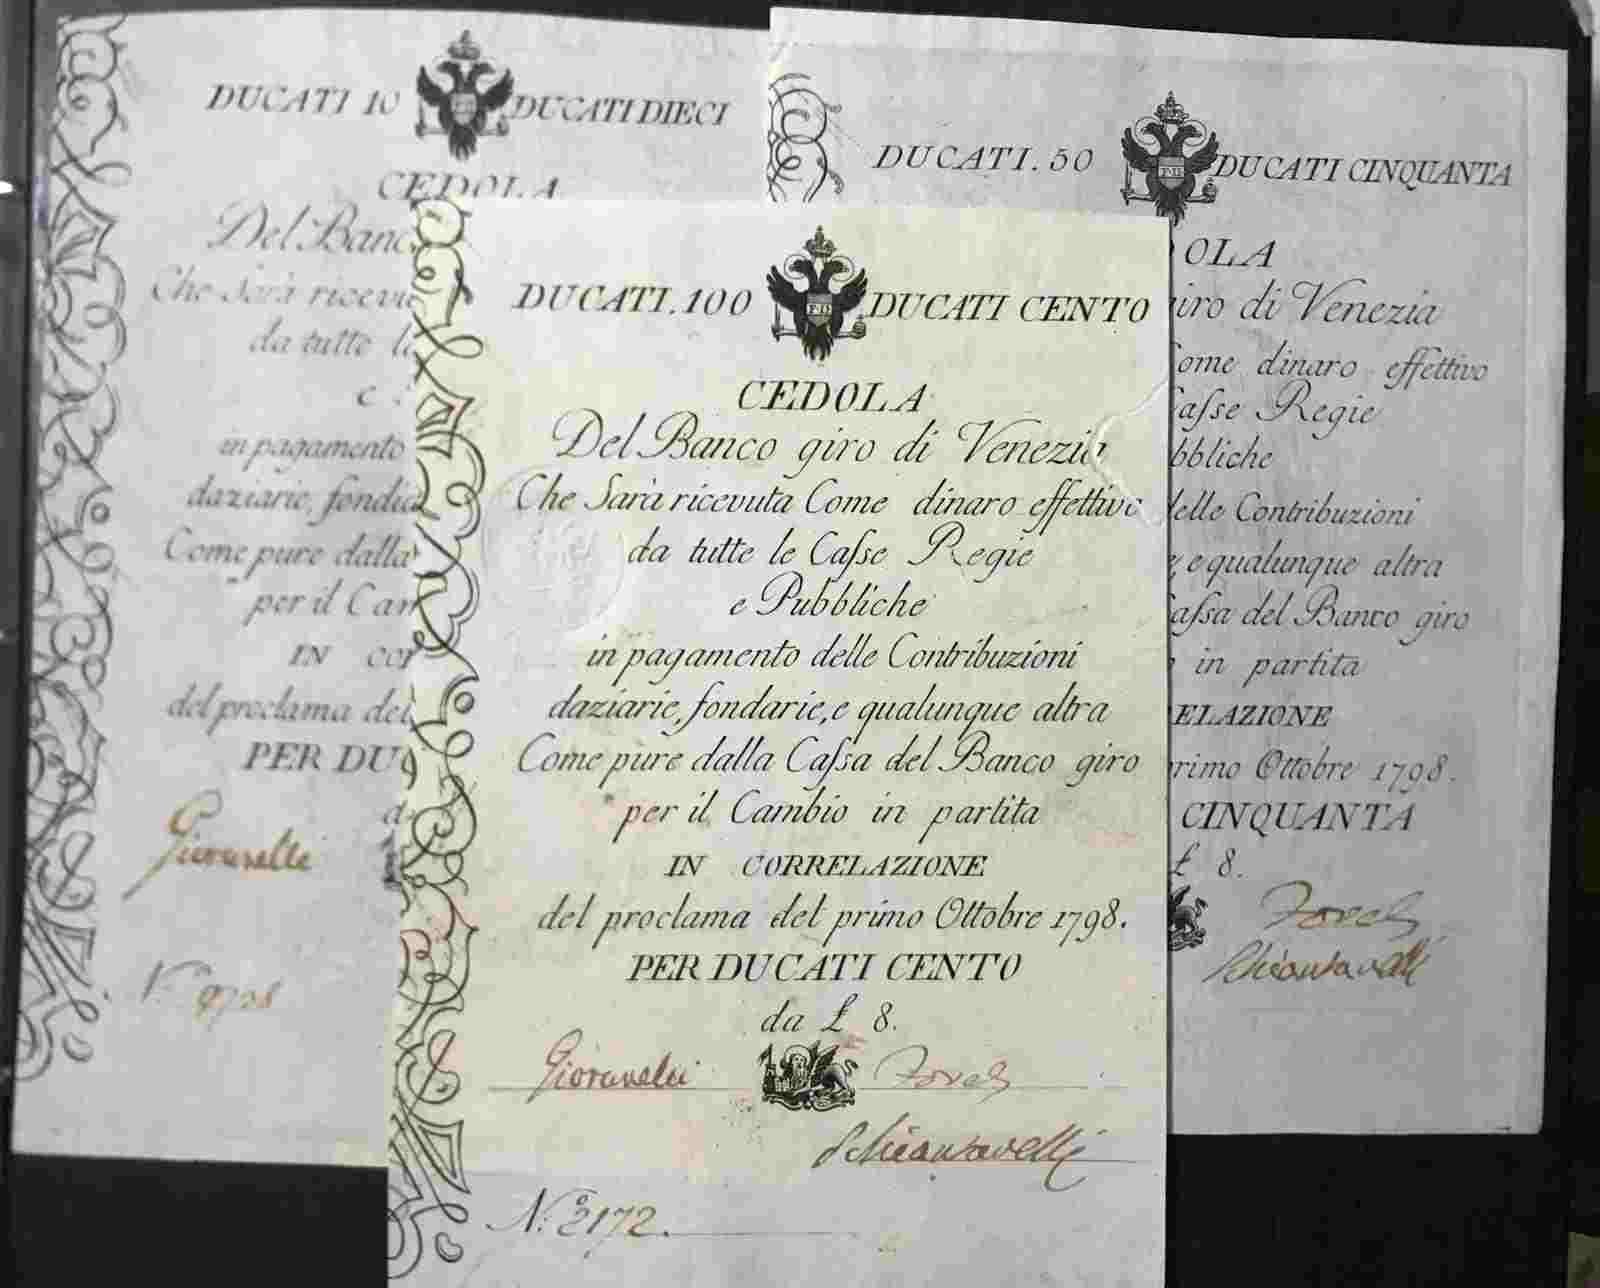 DUCATI 10 DUCATI DIECI
CEDOLA
Del Banc
Che Sarà ricevu
da tutte le
e
in pagamento
daziarie, fondia
Come pure dalla
per il Cam
IN COR
del proclama del
PER DUC
d
N.º 9728
DUCATI. 50 DUCATI CINQUANTA
OLA
giro di Venezia
Come dinaro effettivo
Caſse Regie
bbliche
delle Contribuzioni
e qualunque altra
Caſsa del Banco giro
in partita
ELAZIONE
primo Ottobre 1798.
CINQUANTA
£ 8.
DUCATI. 100 P·D DUCATI CENTO
CEDOLA
Del Banco giro di Venezia
Che Sarà ricevuta Come dinaro effettivo
da tutte le Caſse Regie
e Pubbliche
in pagamento delle Contribuzioni
daziarie, fondarie, e qualunque altra
Come pure dalla Caſsa del Banco giro
per il Cambio in partita
IN CORRELAZIONE
del proclama del primo Ottobre 1798.
PER DUCATI CENTO
da £ 8.
N.º 2172.